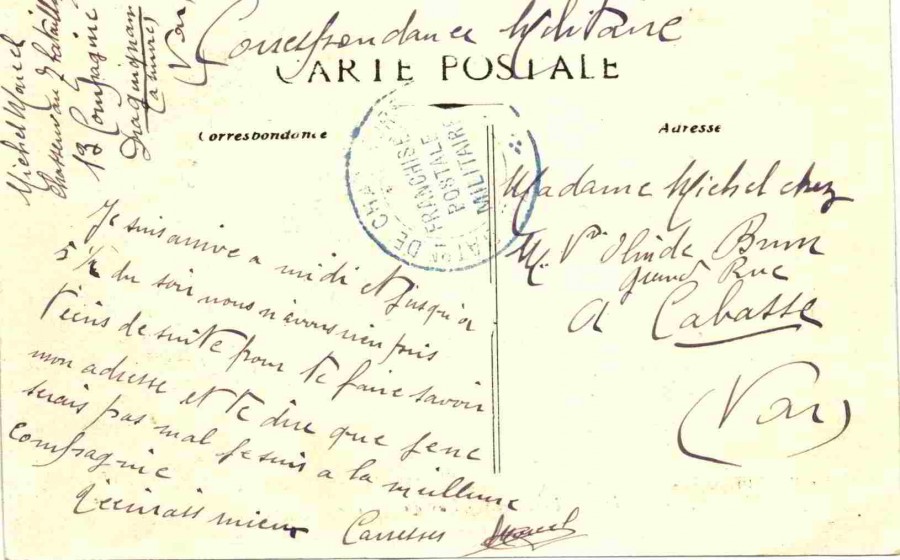 Correspondance Militaire
CARTE POSTALE
Correspondance
Adresse
Michel Marcel
Chasseurs Bataillon
13 Compagnie
Draguignan
Caserne
Var
FRANCHISE
POSTALE
MILITAIRE
Je suis arrive a midi et jusqu'a
5 1/2 du soir nous n'avons rien pris
t'ecris de suite pour te faire savoir
mon adresse et te dire que je ne
serais pas mal je suis a la meilleure
compagnie
t'ecrirais mieux Caresses Marcel
Madame Michel chez
Me Vve Olinde Brun
Grand Rue
a Cabasse
(Var)